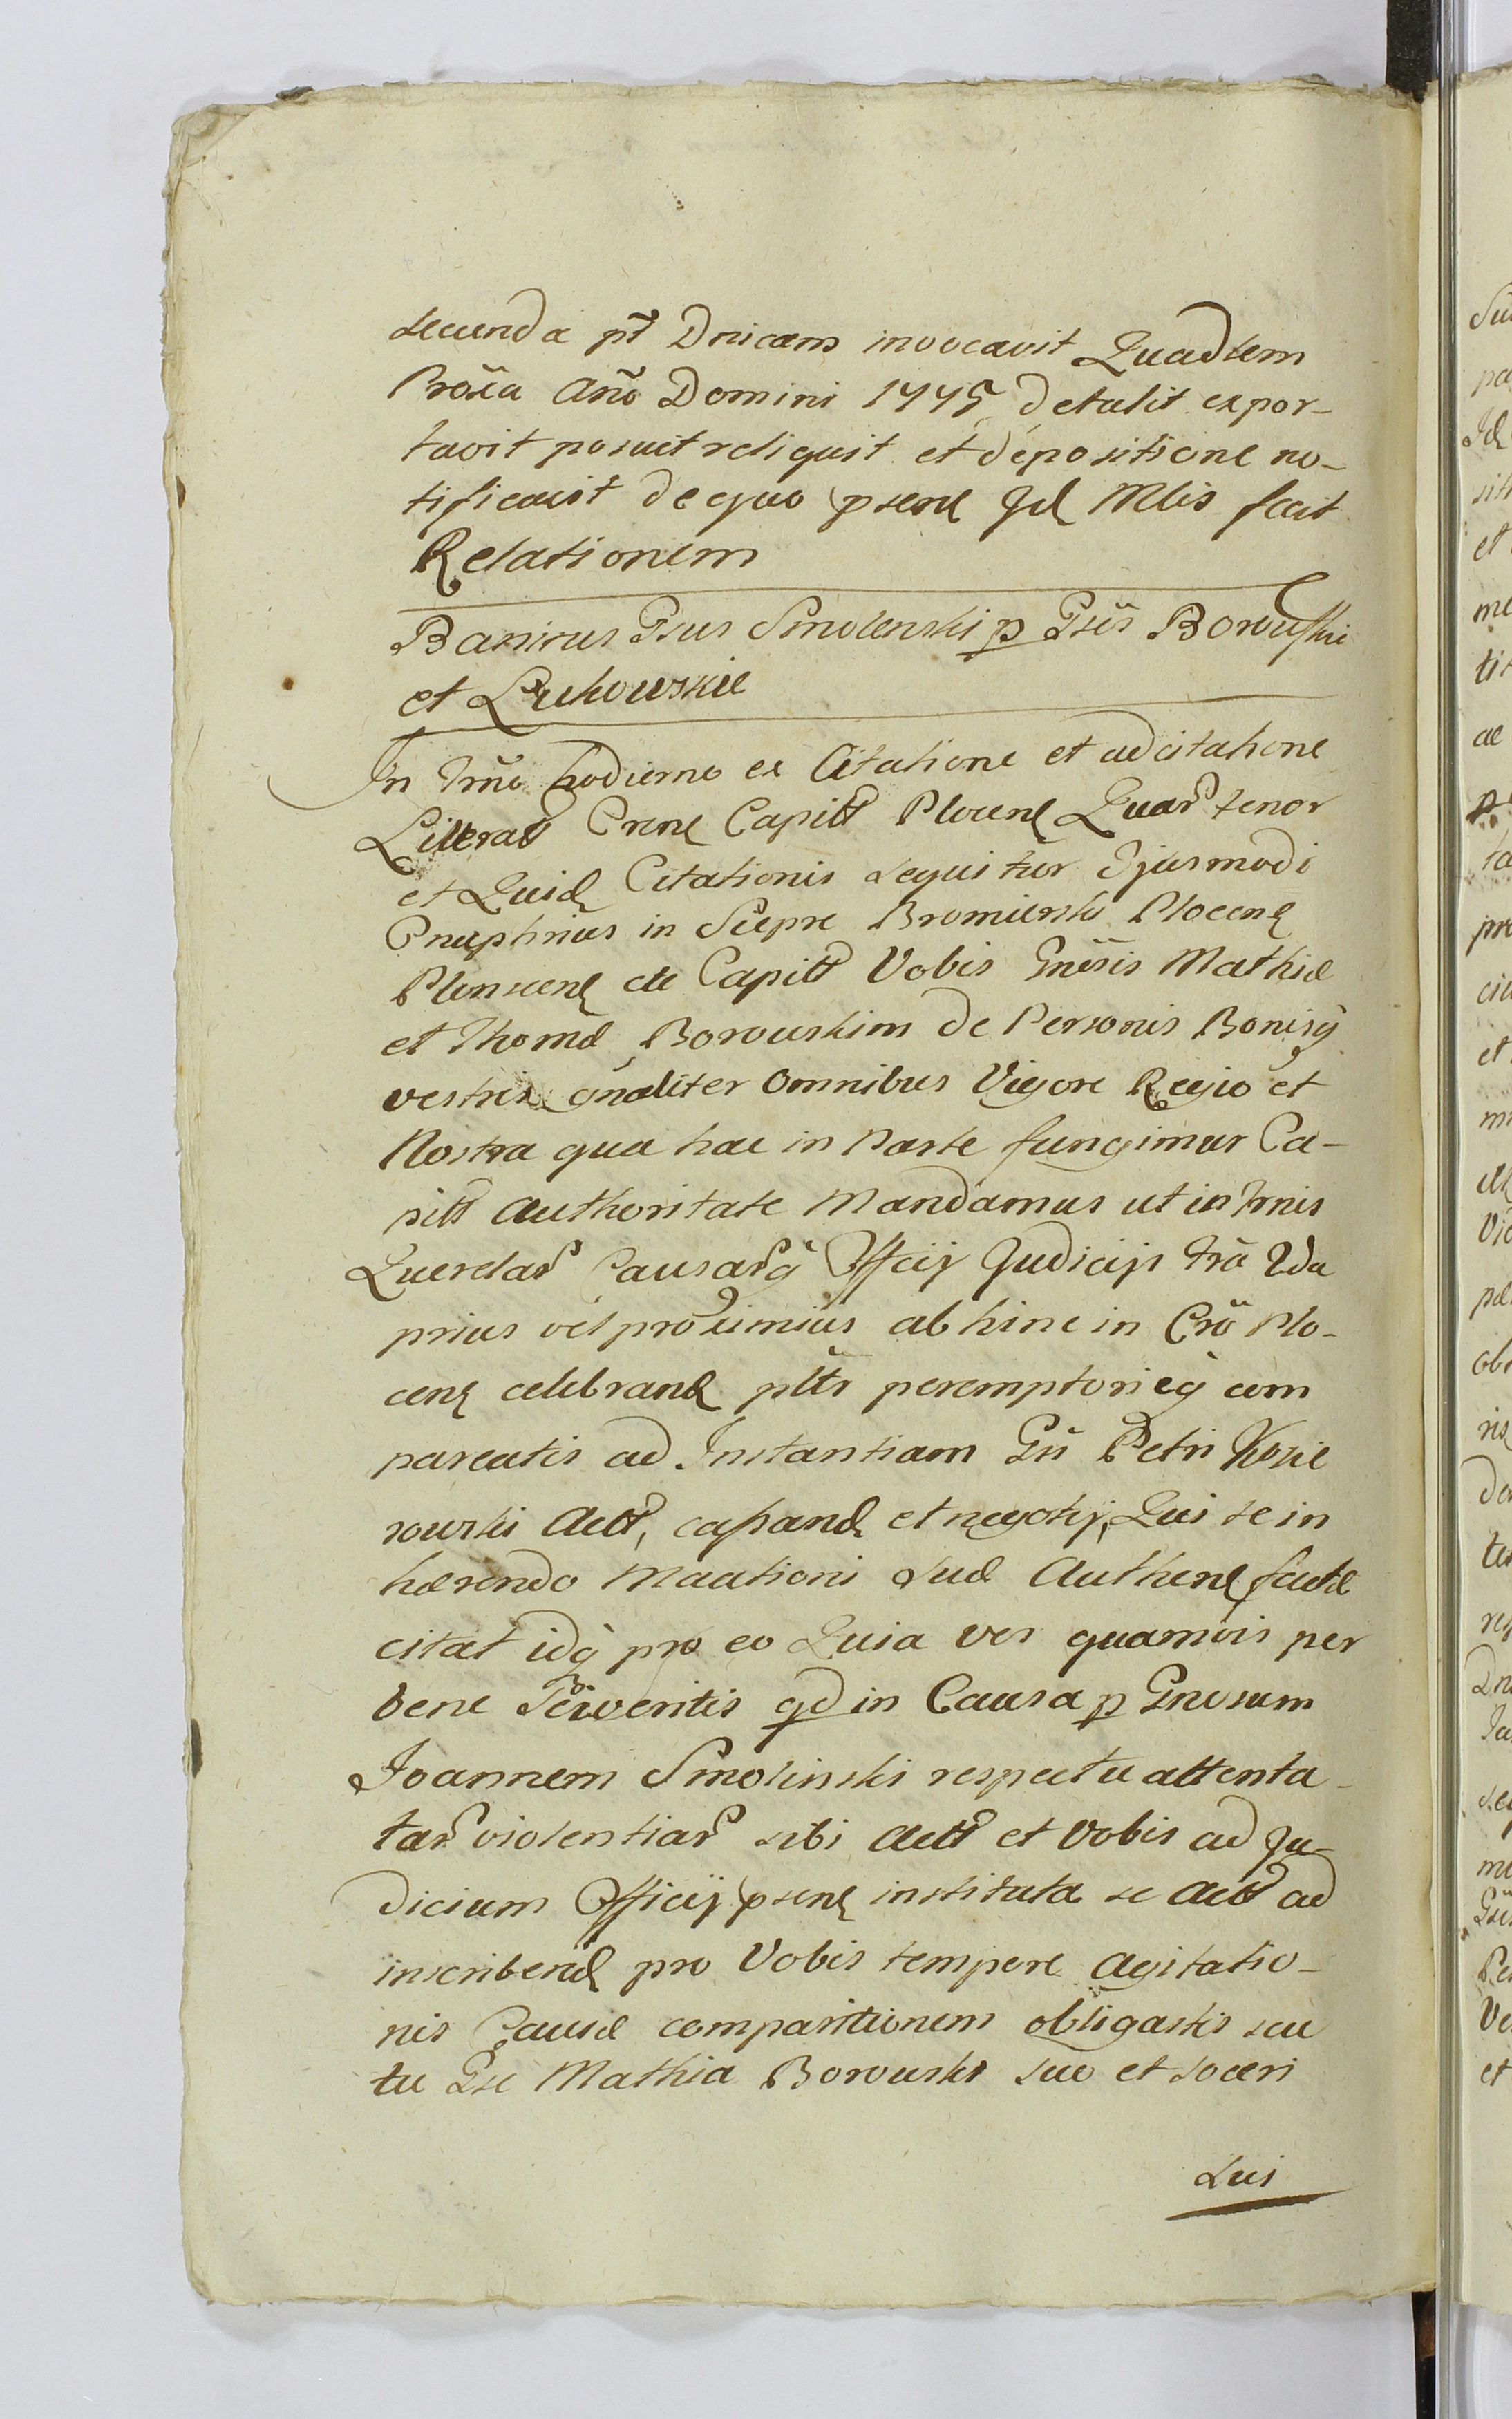 secunda pt Dnicam invocavit Quadlem
Proxa Año Domini 1775 detulit expor-
tavit posuit reliquit et depositione no-
tificavit de quo psens Jd Mlis fecit
Relationem
Banitus Gsus Smolenski p Gsis Borowskie
et Lukowskie
In Trno hodierno ex Citatione et adcitatione
Litterar Crens Capitl Plocens Quar tenor
et Quid Citationis sequitur Ejusmodi
Onuphrius in Sierpc Bromierski Plocens
Plonscens etc Capitl Vobis Gnosis Mathiæ
et Thomæ Borowskim de Personis Bonisq
vestris gnaliter omnibus Vigore Regio et
Nostra qua hac in Parte fungimur Ca-
pitl Authoritate Mandamus ut in Trnis
Querelar Causarq Officij Judicijs tra Vda
prius vel proximius abhinc in Cro Plo-
cens celebrand pltr peremptorieq com
pareatis ad Instantiam Gsi Petri
rowski Actt, capsand et negotij, Qui se in
hærendo Maationi suæ Authene factæ
citat idq pro eo Quia vos quamvis per
bene sciveritis qd in Causa p Gnosum
Joannem Smolinski respectu attenta-
tar violentiar sibi Actt et Vobis ad Ju-
dicium Officij psens instituta se Actt ad
inscribend pro Vobis tempore Agitatio-
nis Causæ comparitionem obligastis seu
tu Gse Mathia Borowski suo et soceri
Sui